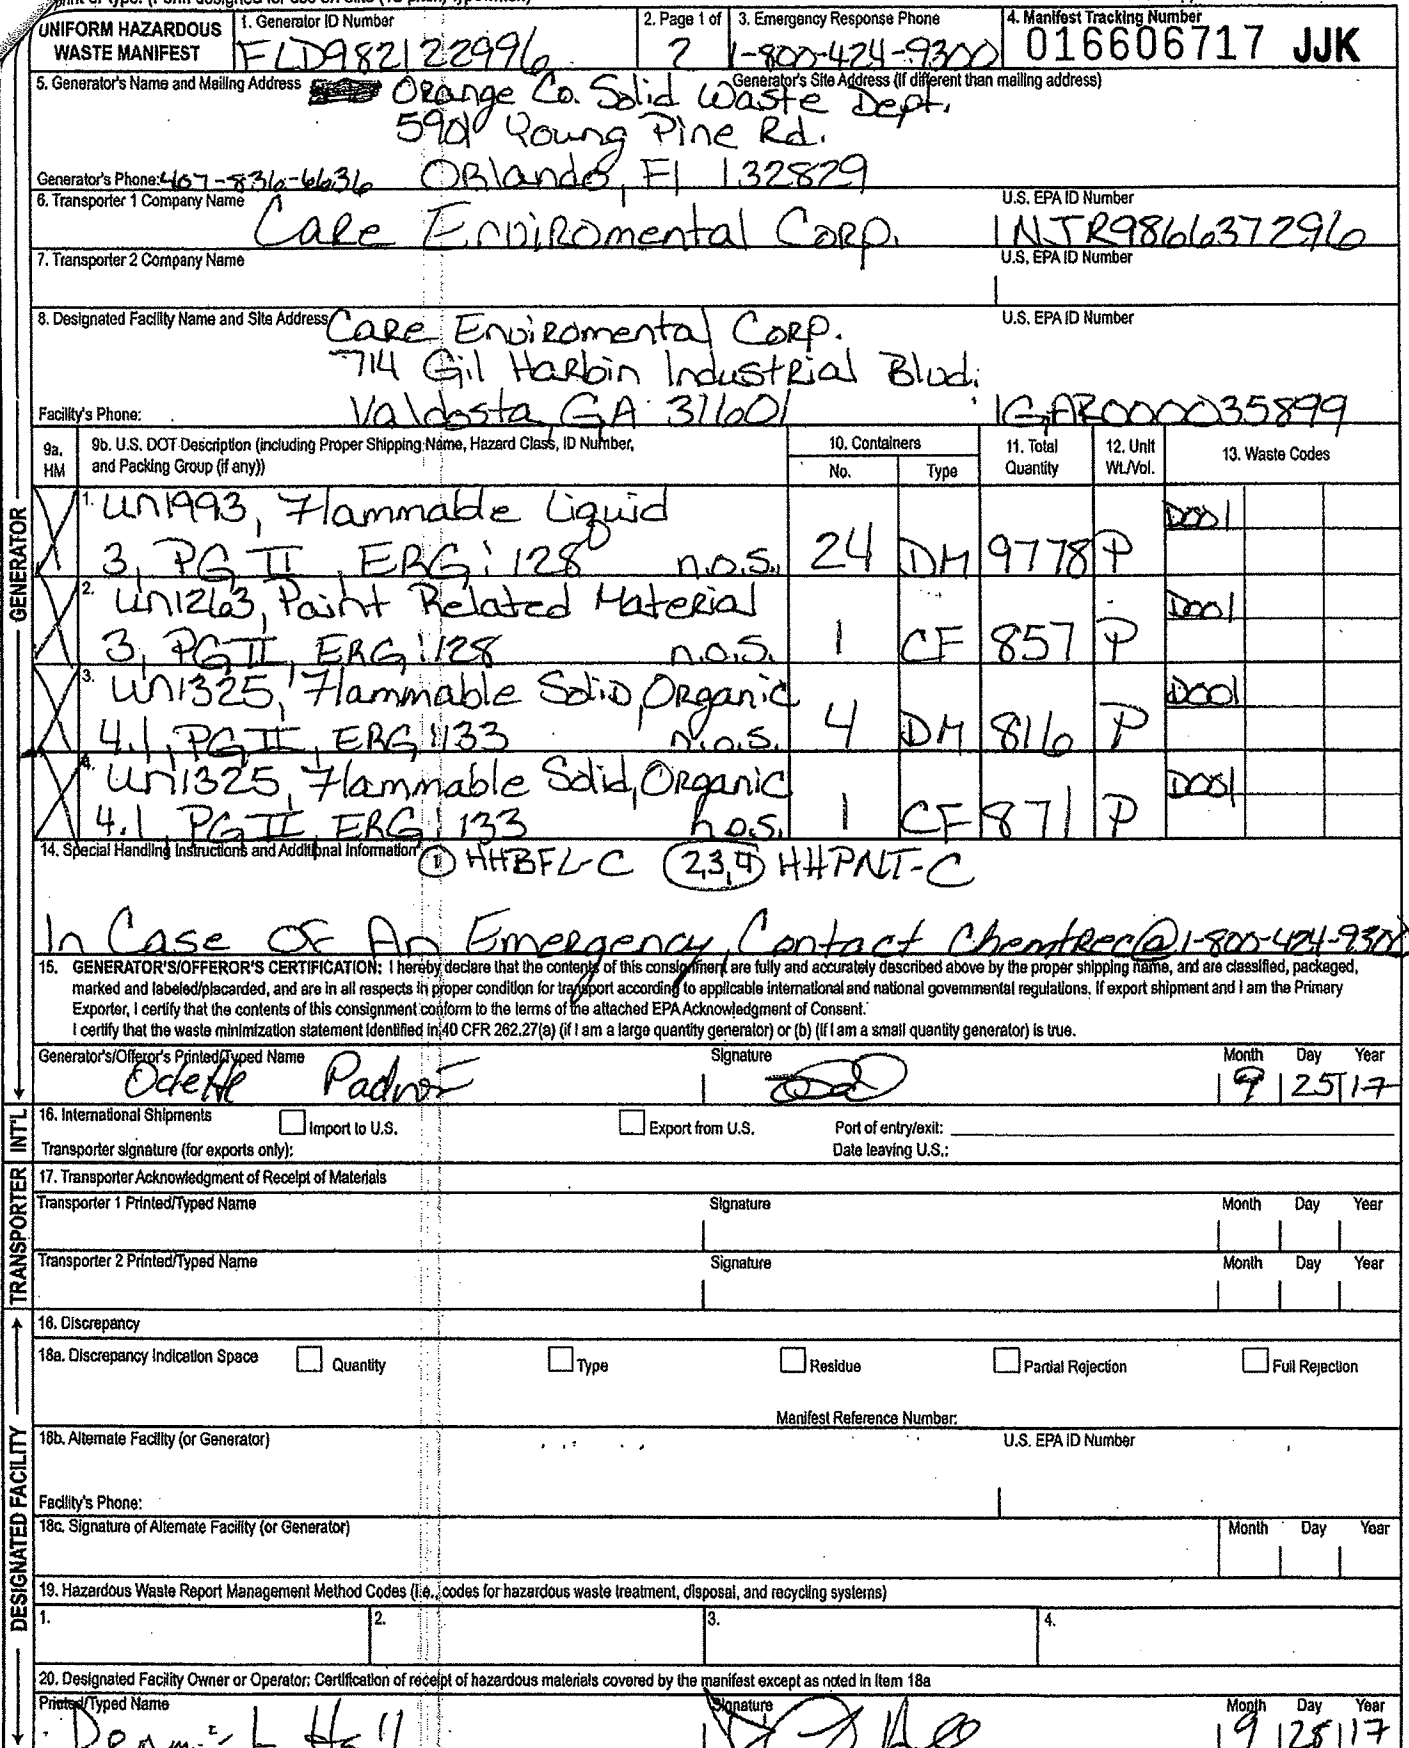 UNIFORM HAZARDOUS WASTE MANIFEST
1. Generator ID Number
FLD982122996
2. Page 1 of
2
3. Emergency Response Phone
1-800-424-9300
4. Manifest Tracking Number
016606717 JJK
5. Generator's Name and Mailing Address
Generator's Site Address (if different than mailing address)
Orange Co. Solid Waste Dept.
5901 Young Pine Rd.
Orlando, Fl 32829
Generator's Phone: 407-836-6636
6. Transporter 1 Company Name
Care Enviromental Corp.
U.S. EPA ID Number
NJR986637296
7. Transporter 2 Company Name
U.S. EPA ID Number
8. Designated Facility Name and Site Address
U.S. EPA ID Number
Care Enviromental Corp.
714 Gil Harbin Industrial Blvd.
Valdosta, GA 31601
GAR000035899
Facility's Phone:
9a. HM
9b. U.S. DOT Description (including Proper Shipping Name, Hazard Class, ID Number, and Packing Group (if any))
10. Containers
No. Type
11. Total Quantity
12. Unit Wt./Vol.
13. Waste Codes
X 1. UN1993, Flammable Liquid
3, PG II, ERG: 128 n.o.s. 24 DM 9778 P D001
X 2. UN1263, Paint Related Material
3, PG II, ERG: 128 n.o.s. 1 CF 857 P D001
X 3. UN1325, Flammable Solid, Organic
4.1, PG II, ERG: 133 n.o.s. 4 DM 816 P D001
X 4. UN1325, Flammable Solid, Organic
4.1, PG II, ERG: 133 n.o.s. 1 CF 871 P D001
14. Special Handling Instructions and Additional Information
① HHBFL-C (2,3,4) HHPNT-C
In Case Of An Emergency, Contact Chemtrec@1-800-424-9300
15. GENERATOR'S/OFFEROR'S CERTIFICATION: I hereby declare that the contents of this consignment are fully and accurately described above by the proper shipping name, and are classified, packaged,
marked and labeled/placarded, and are in all respects in proper condition for transport according to applicable international and national governmental regulations. If export shipment and I am the Primary
Exporter, I certify that the contents of this consignment conform to the terms of the attached EPA Acknowledgment of Consent.
I certify that the waste minimization statement identified in 40 CFR 262.27(a) (if I am a large quantity generator) or (b) (if I am a small quantity generator) is true.
Generator's/Offeror's Printed/Typed Name
Signature
Month Day Year
Odette
9 25 17
16. International Shipments
Import to U.S.
Export from U.S.
Port of entry/exit:
Transporter signature (for exports only):
Date leaving U.S.:
17. Transporter Acknowledgment of Receipt of Materials
Transporter 1 Printed/Typed Name
Signature
Month Day Year
Transporter 2 Printed/Typed Name
Signature
Month Day Year
18. Discrepancy
18a. Discrepancy Indication Space
Quantity
Type
Residue
Partial Rejection
Full Rejection
Manifest Reference Number:
18b. Alternate Facility (or Generator)
U.S. EPA ID Number
Facility's Phone:
18c. Signature of Alternate Facility (or Generator)
Month Day Year
19. Hazardous Waste Report Management Method Codes (i.e., codes for hazardous waste treatment, disposal, and recycling systems)
1.
2.
3.
4.
20. Designated Facility Owner or Operator: Certification of receipt of hazardous materials covered by the manifest except as noted in Item 18a
Printed/Typed Name
Signature
Month Day Year
9 28 17
GENERATOR
INT'L
TRANSPORTER
DESIGNATED FACILITY